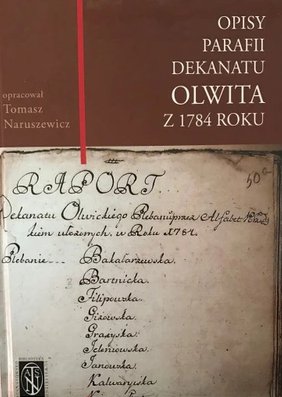 OPISY
PARAFII
DEKANATU
OLWITA
Z 1784 ROKU
opracował
Tomasz
Naruszewicz
50
RAPORT.
Dekanatu Olwickiego Plebanii przez Alfabet
kiem ułożonych, w Roku 1784.
Plebanie
Bakałarzewska.
Bartnicka.
Filipowska.
Giżowska.
Grażyska.
Jeleniowska.
Janowska.
Kalwaryiska